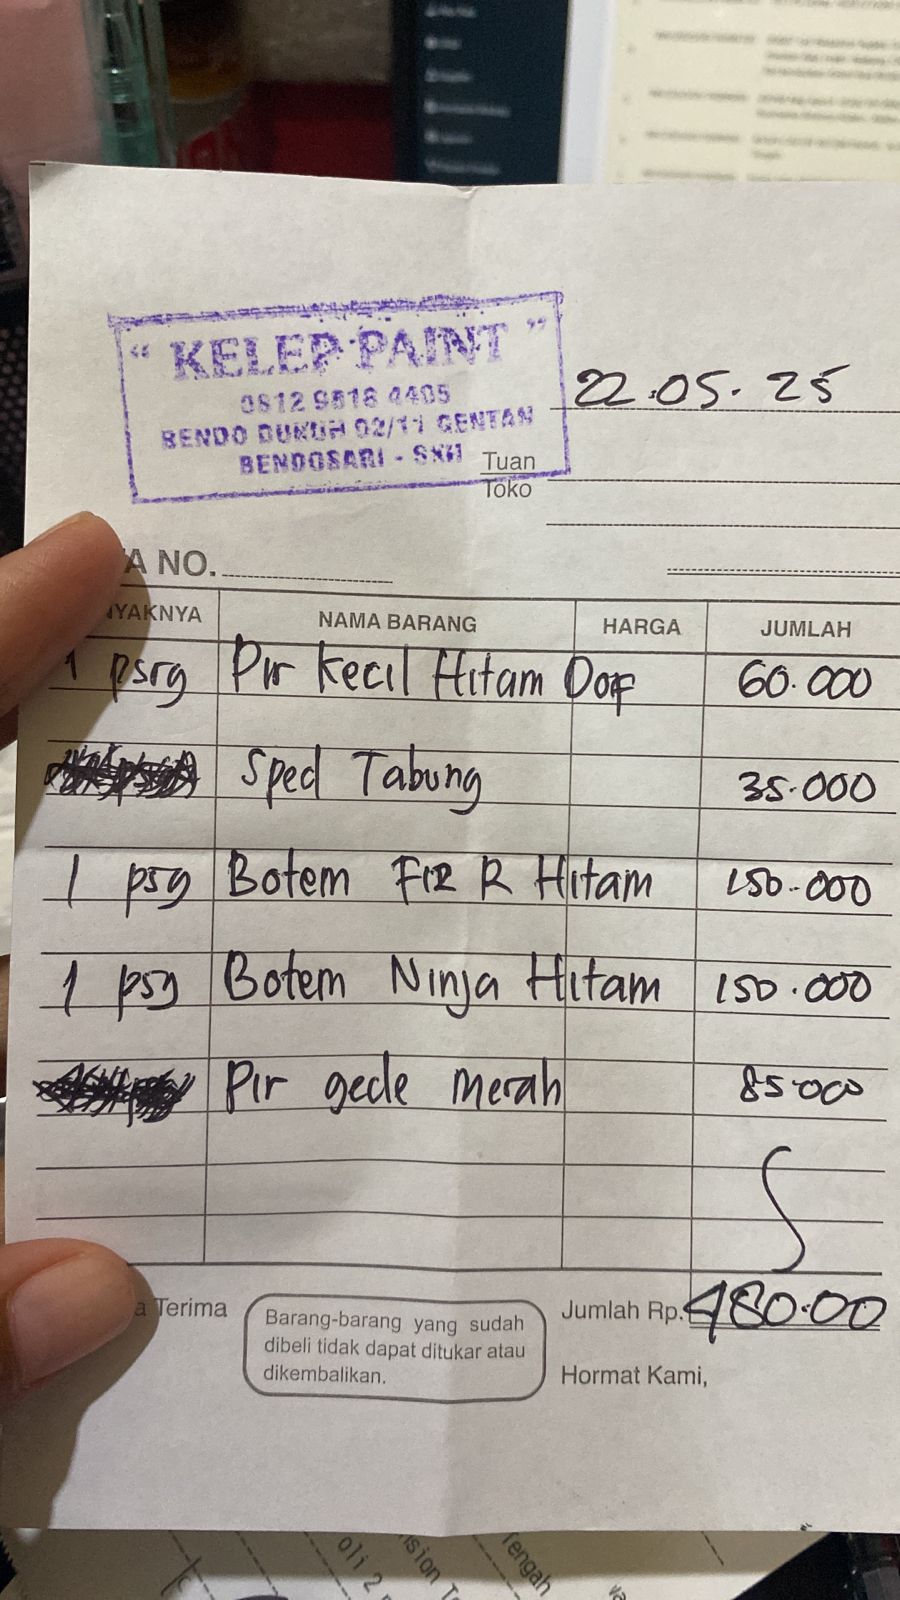 " KELEP PAINT "
0812 9818 4405
BENDO DUKUH 02/11 GENTAN
BENDOSARI - SKH
22.05.25
Tuan
Toko
A NO.
NYAKNYA NAMA BARANG HARGA JUMLAH
1 psrg Pir Kecil Hitam Dof 60.000
Sped Tabung 35.000
1 psg Botem FIZ R Hitam 150.000
1 psg Botem Ninja Hitam 150.000
Pir gede merah 85000
a Terima
Barang-barang yang sudah
dibeli tidak dapat ditukar atau
dikembalikan.
Jumlah Rp. 480.00
Hormat Kami,
oli 2
Tengah